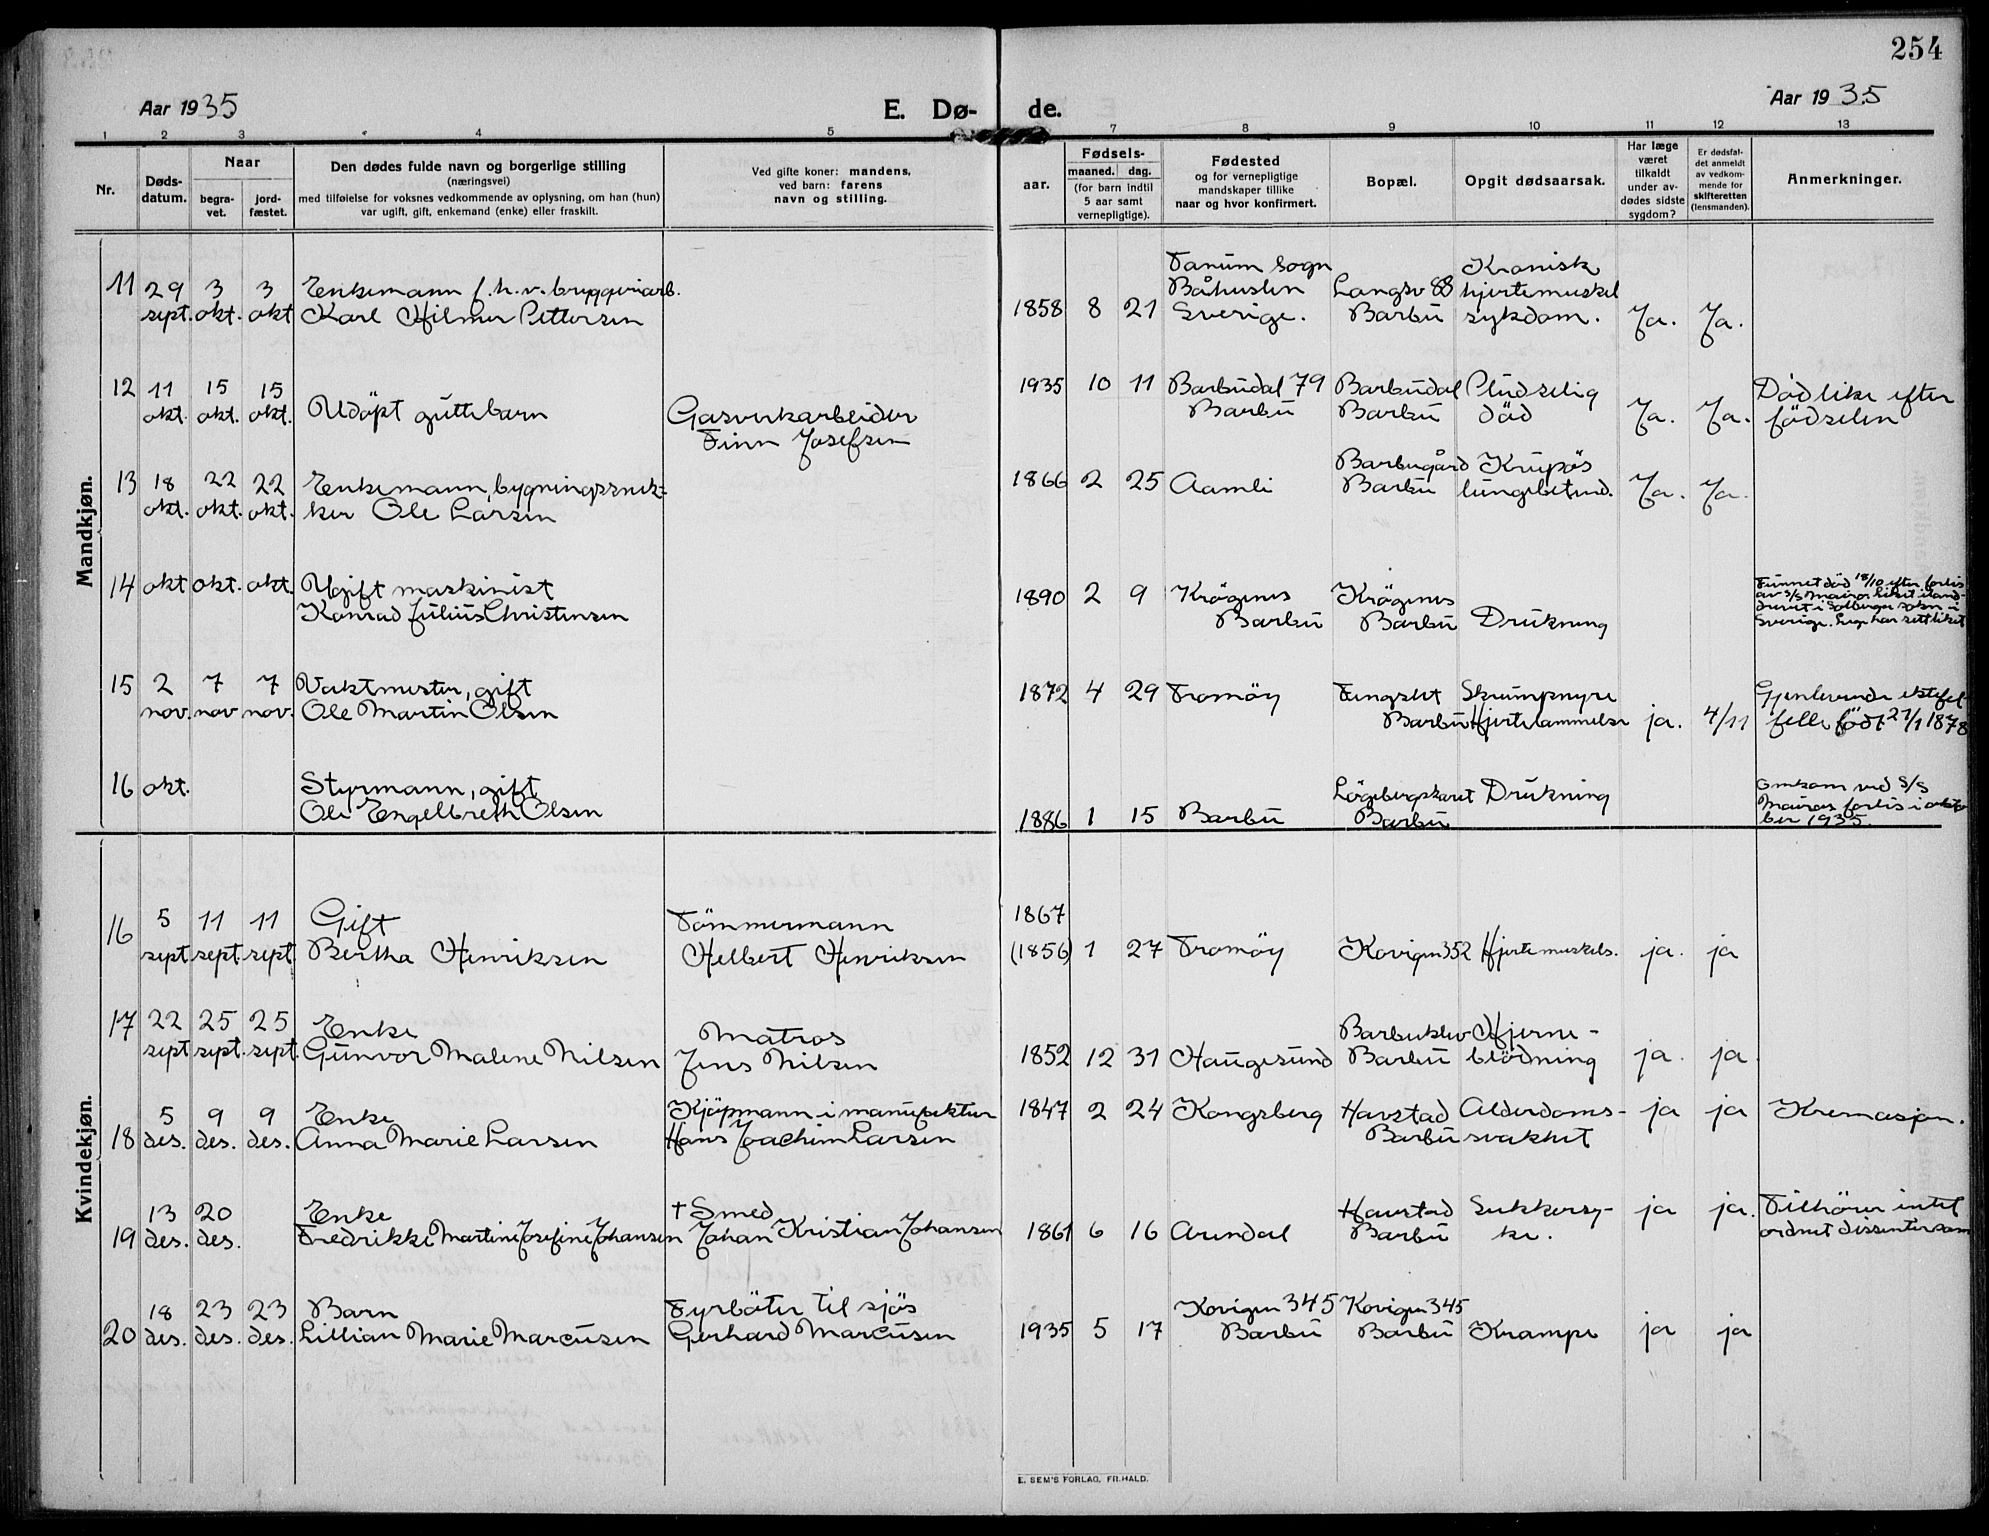 254
Aar 1935
E. Dø-
de.
Aar 1935
1 2 3 4 5
7 8 9 10 11 12 13
Nr.
Døds-
datum.
Naar
begra-
vet.
jord-
fæstet.
Den dødes fulde navn og borgerlige stilling
(næringsvei)
med tilføielse for voksnes vedkommende av oplysning, om han (hun)
var ugift, gift, enkemand (enke) eller fraskilt.
Ved gifte koner: mandens,
ved barn: farens
navn og stilling.
aar.
Fødsels-
maaned. dag.
(for barn indtil
5 aar samt
vernepligtige).
Fødested
og for vernepligtige
mandskaper tillike
naar og hvor konfirmert.
Bopæl.
Opgit dødsaarsak.
Har læge
været
tilkaldt
under av-
dødes sidste
sygdom?
Er dødsfal-
det anmeldt
av vedkom-
mende for
skifteretten
(lensmanden).
Anmerkninger.
Mandkjøn.
11
29
sept.
3
okt.
3
okt
Enkemann f.h.v. bryggeriarb.
Karl Hilmer Pettersen
1858 8 21
Tanum sogn
Båhuslen
Sverige.
Langsv 88
Barbu
Kronisk
hjertemuskel
sykdom.
Ja. Ja.
12
11
okt.
15
okt.
15
okt.
Udöpt guttebarn
Gasverkarbeider
Finn Josefsen
1935 10 11
Barbudal 79
Barbu
Barbudal
Barbu
Pludselig
död
Ja. Ja.
Död like efter
födselen
13
18
okt.
22
okt.
22
okt.
Enkemann, bygningssnek-
ker Ole Larsen
1866 2 25
Aamli
Barbugård
Barbu
Krupös
lungebetend.
Ja. Ja.
14
okt okt. okt.
Ugift maskinist
Konrad Julius Christensen
1890 2 9
Krögenes
Barbu
Krögenes
Barbu
Drukning
Funnet död 18/10 efter forlis
av s/s Mairos liket iland-
drevet i Solberga sokn i
Sverige. Lege har sett liket
15
2
nov.
7
nov
7
nov.
Vaktmester, gift
Ole Martin Olsen
1872 4 29
Tromöy
Fengslet
Barbu
Skrumpnyre
Hjertelammelse
ja. 4/11
Gjenlevende ektefel-
felle födt 27/1 1878
16
okt.
Styrmann, gift
Ole Engelbreth Olsen
1886 1 15
Barbu
Lögebergskaret
Barbu
Drukning
omkom ved S/S
Mairos forlis i okto-
ber 1935.
Kvindekjøn.
16
5
sept
11
sept.
11
sept.
Gift
Bertha Henriksen
Tömmermann
Helbert Henriksen
1867
(1856) 1 27
Tromöy
Kovigen 352
Hjertemuskels.
ja. ja
17
22
sept
25
sept.
25
sept.
Enke
Gunvor Malene Nilsen
Matros
Jens Nilsen
1852 12 31
Haugesund
Barbuklev
Barbu
Hjerne-
blödning
ja. ja.
18
5
des.
9
des.
9
des.
Enke
Anna Marie Larsen
Kjöpmann i manufaktur
Hans Joachim Larsen
1847 2 24
Kongsberg
Havstad
Barbu
Alderdoms-
svakhet
ja ja
Kremasjon.
19
13
des.
20
des.
Enke
Fredrikke Martine Josefine Johansen
† Smed
Johan Kristian Johansen
1861 6 16
Arendal
Havstad
Barbu
Sukkersy-
ke.
ja ja.
Tilhörer intet
ordnet dissentersam
20
18
des.
23
des.
23
des.
Barn
Lillian Marie Marcusen
Fyrböter til sjös
Gerhard Marcusen
1935 5 17
Kovigen 345
Barbu
Kovigen 345
Barbu
Krampe
ja ja
E. SEM'S FORLAG, FR.HALD.